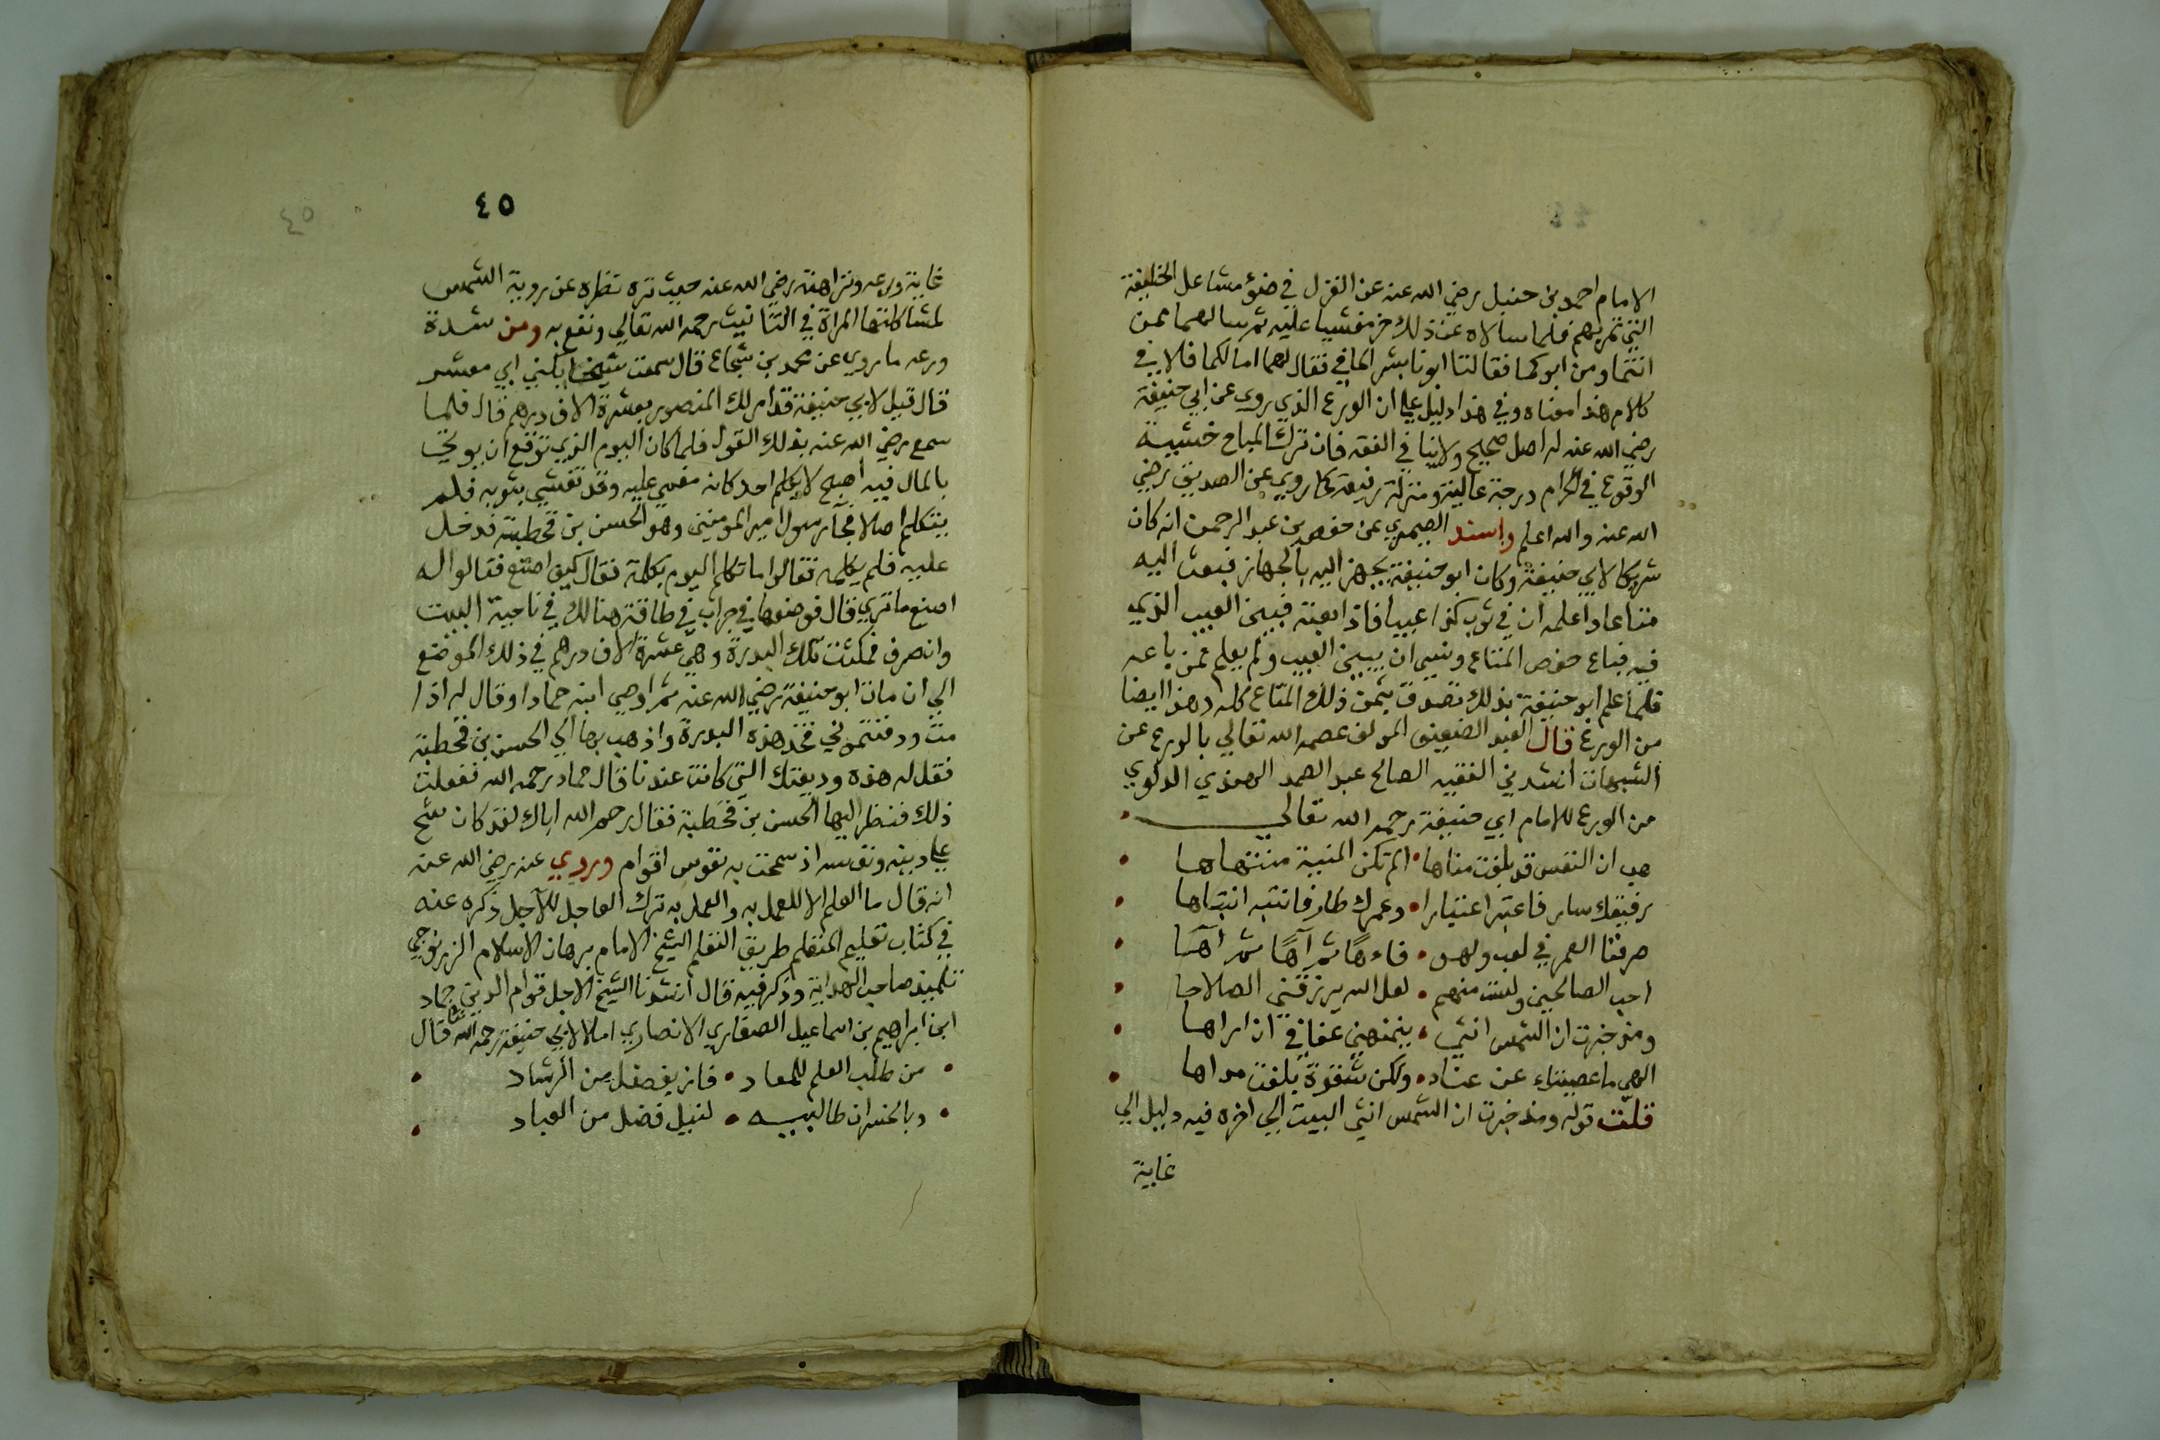 الامام احمد بن حنبل رضي الله عنه عن الغزل في ضوء مشاعل الخليفة
التي تمر بهم فلما سالاه عن ذلك خر مغشيا عليه ثم سالهما ممن
انتما ومن ابوكما فقالتا ابونا بشر الحافي فقال لهما اما لكما فلا في
كلام هذا معناه وفي هذا دليل علي ان الورع الذي روي عن ابي حنيفة
رضي الله عنه له اصل صحيح ولا ينافي الفقه فان ترك المباح خشية
الوقوع في الحرام درجة عالية ومنزلة رفيعة كما روي عن الصديق رضي
الله عنه والله اعلم واسند الصيمري عن حفص بن عبد الرحمن انه كان
شريكا لابي حنيفة وكان ابو حنيفة يجهز اليه بالجهاز فبعث اليه
متاعا واعلمه ان في ثوب كذا عيبا فاذا بعته فبين العيب الذي
فيه فباع حفص المتاع ونسي ان يبين العيب ولم يعلم ممن باعه
فلما علم ابو حنيفة بذلك تصدق بثمن ذلك المتاع كله وهذا ايضا
من الورع قال العبد الضعيف المولف عصمه الله تعالي بالورع عن
الشبهات انشدني الفقيه الصالح عبد الصمد الهندي الدلوي
من الورع للامام ابي حنيفة رحمه الله تعالي
هب ان النفس قد بلغت مناها • الم تكن المنية منتهاها
رفيقك سار فاعتبر اعتبارا • وعمرك طار فانتبه انتباها
صرفنا العمر في لعب ولهو • فاءهًا ثم آهًا ثم آهَا
احب الصالحين ولست منهم • لعل الله يرزقني الصلاحا
ومذ خبرت ان الشمس انثي • يمنعني عفافي ان اراها
الهي ما عصيناء عن عناد • ولكن شقوة بلغت مداها
قلت قوله ومذ خبرت ان الشمس انثي البيت الي اخره فيه دليل الي
غاية
٤٥
غاية ورعه ونزاهته رضي الله عنه حيث نزه نظره عن روية الشمس
لمشاكلتها المراة في التانيث رحمه الله تعالي ونفع به ومن شدة
ورعه ما روي عن محمد بن شجاع قال سمعت شيخا يكني ابي معشر
قال قيل لابي حنيفة قد امر لك المنصور بعشرة الاف درهم قال فلما
سمع رضي الله عنه بذلك القول فلما كان اليوم الذي توقع ان يوتي
بالمال فيه اصبح لا يكلم احد كانه مغمي عليه وقد تغشي بثوبه فلم
يتكلم اصلا فجآء رسول امير المومنين وهو الحسن بن قحطبة فدخل
عليه فلم يكلمه فقالوا ما تكلم اليوم بكلمة فقال كيف اصنع فقالوا له
اصنع ما تري قال فوضعها في جراب في طاقة هنالك في ناحية البيت
وانصرف فمكثت تلك البدرة وهي عشرة الاف درهم في ذلك الموضع
الي ان مات ابو حنيفة رضي الله عنه ثم اوصي ابنه حمادا وقال له اذا
مت ودفنتموني فخذ هذه البدرة واذهب بها الي الحسن بن قحطبة
فقل له هذه وديعتك التي كانت عندنا قال حماد رحمه الله ففعلت
ذلك فنظر اليها الحسن بن قحطبة فقال رحم الله اباك لقد كان شح
علي دينه ونفسه اذ سمحت به نفوس اقوام وروي عنه رضي الله عنه
انه قال ما العلم الا للعمل به والعمل به ترك العاجل للآجل ذكره عنه
في كتاب تعليم المتعلم طريق التعلم الشيخ الامام برهان الاسلام الزرنوجي
تلميذ صاحب الهداية وذكر فيه قال انشدنا الشيخ الاجل قوام الدين حماد
ابن ابراهيم بن اسماعيل الصفاري الانصاري املا لابي حنيفة رحمه الله تعالي قال
• من طلب العلم للمعاد • فاز بفضل من الرشاد •
• وبالخسران طالبيه • لنيل فضل من العباد •